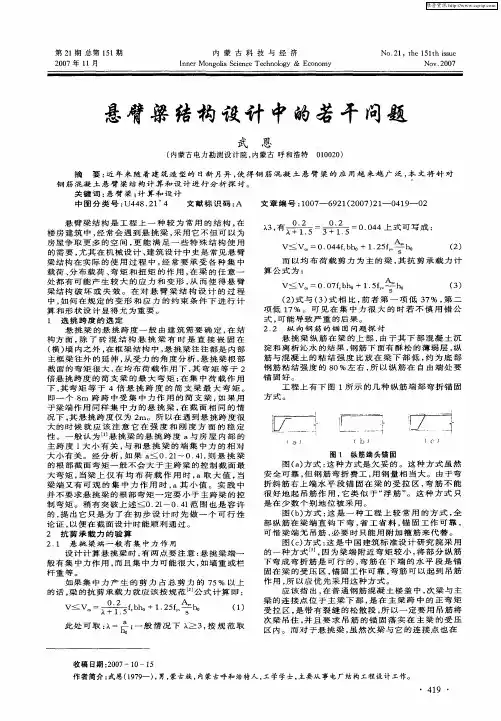 维普资讯 http://www.cqvip.com
第 21 期 总第 151 期
2007 年 11 月
内 蒙 古 科 技 与 经 济
Inner Mongolia Science Technology & Economy
No.21, the 151th issue
Nov.2007
悬臂梁结构设计中的若干问题
武 恩
(内蒙古电力勘测设计院,内蒙古 呼和浩特 010020)
摘 要:近年来随着建筑造型的日新月异,使得钢筋混凝土悬臂梁的应用越来越广泛,本文将针对
钢筋混凝土悬臂梁结构计算和设计进行分析探讨。
关键词:悬臂梁;计算和设计
中图分类号:U448.21+4 文献标识码:A 文章编号:1007—6921(2007)21—0419—02
悬臂梁结构是工程上一种较为常用的结构,在
楼房建筑中,经常会遇到悬挑梁,采用它不但可以为
房屋争取更多的空间,更能满足一些特殊结构使用
的需要,尤其在机械设计,建筑设计中更是常见悬臂
梁结构在实际的使用过程中,经常要承受各种集中
载荷、分布载荷、弯矩和扭矩的作用,在梁的任意一
处都有可能产生较大的应力和变形,从而使得悬臂
梁结构破坏或失效。在对悬臂梁结构设计的过程
中,如何在规定的变形和应力的约束条件下进行计
算和形状设计显得尤为重要。
1 选挑跨度的选定
悬挑梁的悬挑跨度一般由建筑需要确定,在结
构方面,除了砖混结构悬挑梁有时是直接嵌固在
(横)墙内之外,在框架结构中,悬挑梁往往都是内部
主框架往外的延伸,从受力的角度分析,悬挑梁根部
截面的弯矩很大,在均布荷载作用下,其弯矩等于 2
倍悬挑跨度的简支梁的最大弯矩;在集中荷载作用
下,其弯矩等于 4 倍悬挑跨度的简支梁最大弯矩。
即一个 8m 跨跨中受集中力作用的简支梁,如果用
于梁端作用同样集中力的悬挑梁,在截面相同的情
况下,其悬挑跨度仅为 2m。所以在遇到悬挑跨度很
大的时候就应该注意它在强度和刚度方面的稳定
性。一般认为[1]悬挑梁的悬挑跨度 a 与房屋内部的
主跨度 l 大小有关,与和悬挑梁的端集中力的相对
大小有关。经分析,如果 a≤0.2l~0.4l,则悬挑梁
的根部截面弯矩一般不会大于主跨梁的控制截面最
大弯矩,当梁上仅有均布荷载作用时,a 取大值,当
梁端又有可观的集中力作用时,a 其小值。实践中
并不要求悬挑梁的根部弯矩一定要小于主跨梁的控
制弯矩。稍有突破上述≤0.2l~0.4l 范围也是容许
的,提出它只是为了在初步设计时先做一个可行性
论证,以便在截面设计时能顺利通过。
2 抗剪承载力的验算
2.1 悬挑梁端一般有集中力作用
设计计算悬挑梁时,有两点要注意:悬挑梁端一
般有集中力作用,而且集中力可能很大,如墙重或栏
杆重等。
如果集中力产生的剪力占总剪力的 75%以上
的话,梁的抗剪承载力就应该按规范[2]公式计算即:
V≤Vu=0.2/(λ+1.5)fcbh0+1.25fyv Asv/s h0 (1)
此处可取:λ=a/h0;一般情况下 λ≥3,按规范取
λ3,有 0.2/(λ+1.5)=0.2/(3+1.5)=0.044 上式可写成:
V≤Vu=0.044fcbh0+1.25fyv Asv/s h0 (2)
而以均布荷载剪力为主的梁,其抗剪承载力计
算公式为:
V≤Vu=0.07fcbh0+1.5fyv Asv/s h0 (3)
(2)式与(3)式相比,前者第一项低 37%,第二
项低 17%。可见在集中力很大的时若不慎用错公
式,可能导致严重的后果。
2.2 纵向钢筋的锚固问题探讨
悬挑梁纵筋在梁的上部,由于其下部混凝土沉
淀和离析沁水的结果,钢筋下面有酥松的薄弱层,纵
筋与混凝土的粘结强度比放在梁下部低,约为底部
钢筋粘结强度的 80%左右,所以纵筋在自由端处要
锚固好。
工程上有下图 1 所示的几种纵筋端部弯折锚固
方式。
(a) (b) (c)
图 1 纵筋端头锚固
图(a)方式:这种方式是欠妥的。这种方式虽然
安全可靠,但钢筋弯折费工,用钢量相当大。由于弯
折斜筋右上端水平段锚固在梁的受拉区,弯筋不能
很好地起吊筋作用,它类似于“浮筋”。这种方式只
是在少数个别地位被采用。
图(b)方式:这是一种工程上较常用的方式,全
部纵筋在梁端直钩下弯,省工省料,锚固工作可靠,
可惜梁端无吊筋,必要时只能用附加箍筋来代替。
图(c)方式:这是中国建筑标准设计研究院采用
的一种方式[3],因为梁端附近弯矩较小,将部分纵筋
下弯成弯折筋是可行的,弯筋在下端的水平段是锚
固在梁的受压区,锚固工作可靠,弯筋可以起到吊筋
作用,所以应优先采用这种方式。
应该指出,在普通钢筋混凝土楼盖中,次梁与主
梁的连接点位于主梁下部,是在主梁跨中的正弯矩
受拉区,是带有裂缝的松散段,所以一定要用吊筋将
次梁吊住,并且要求吊筋的锚固落实在主梁的受压
区内。而对于悬挑梁,虽然次梁与它的连接点也在
收稿日期:2007-10-15
作者简介:武恩(1979—),男,蒙古族,内蒙古呼和浩特人,工学学士,主要从事电厂结构工程设计工作。
· 419 ·